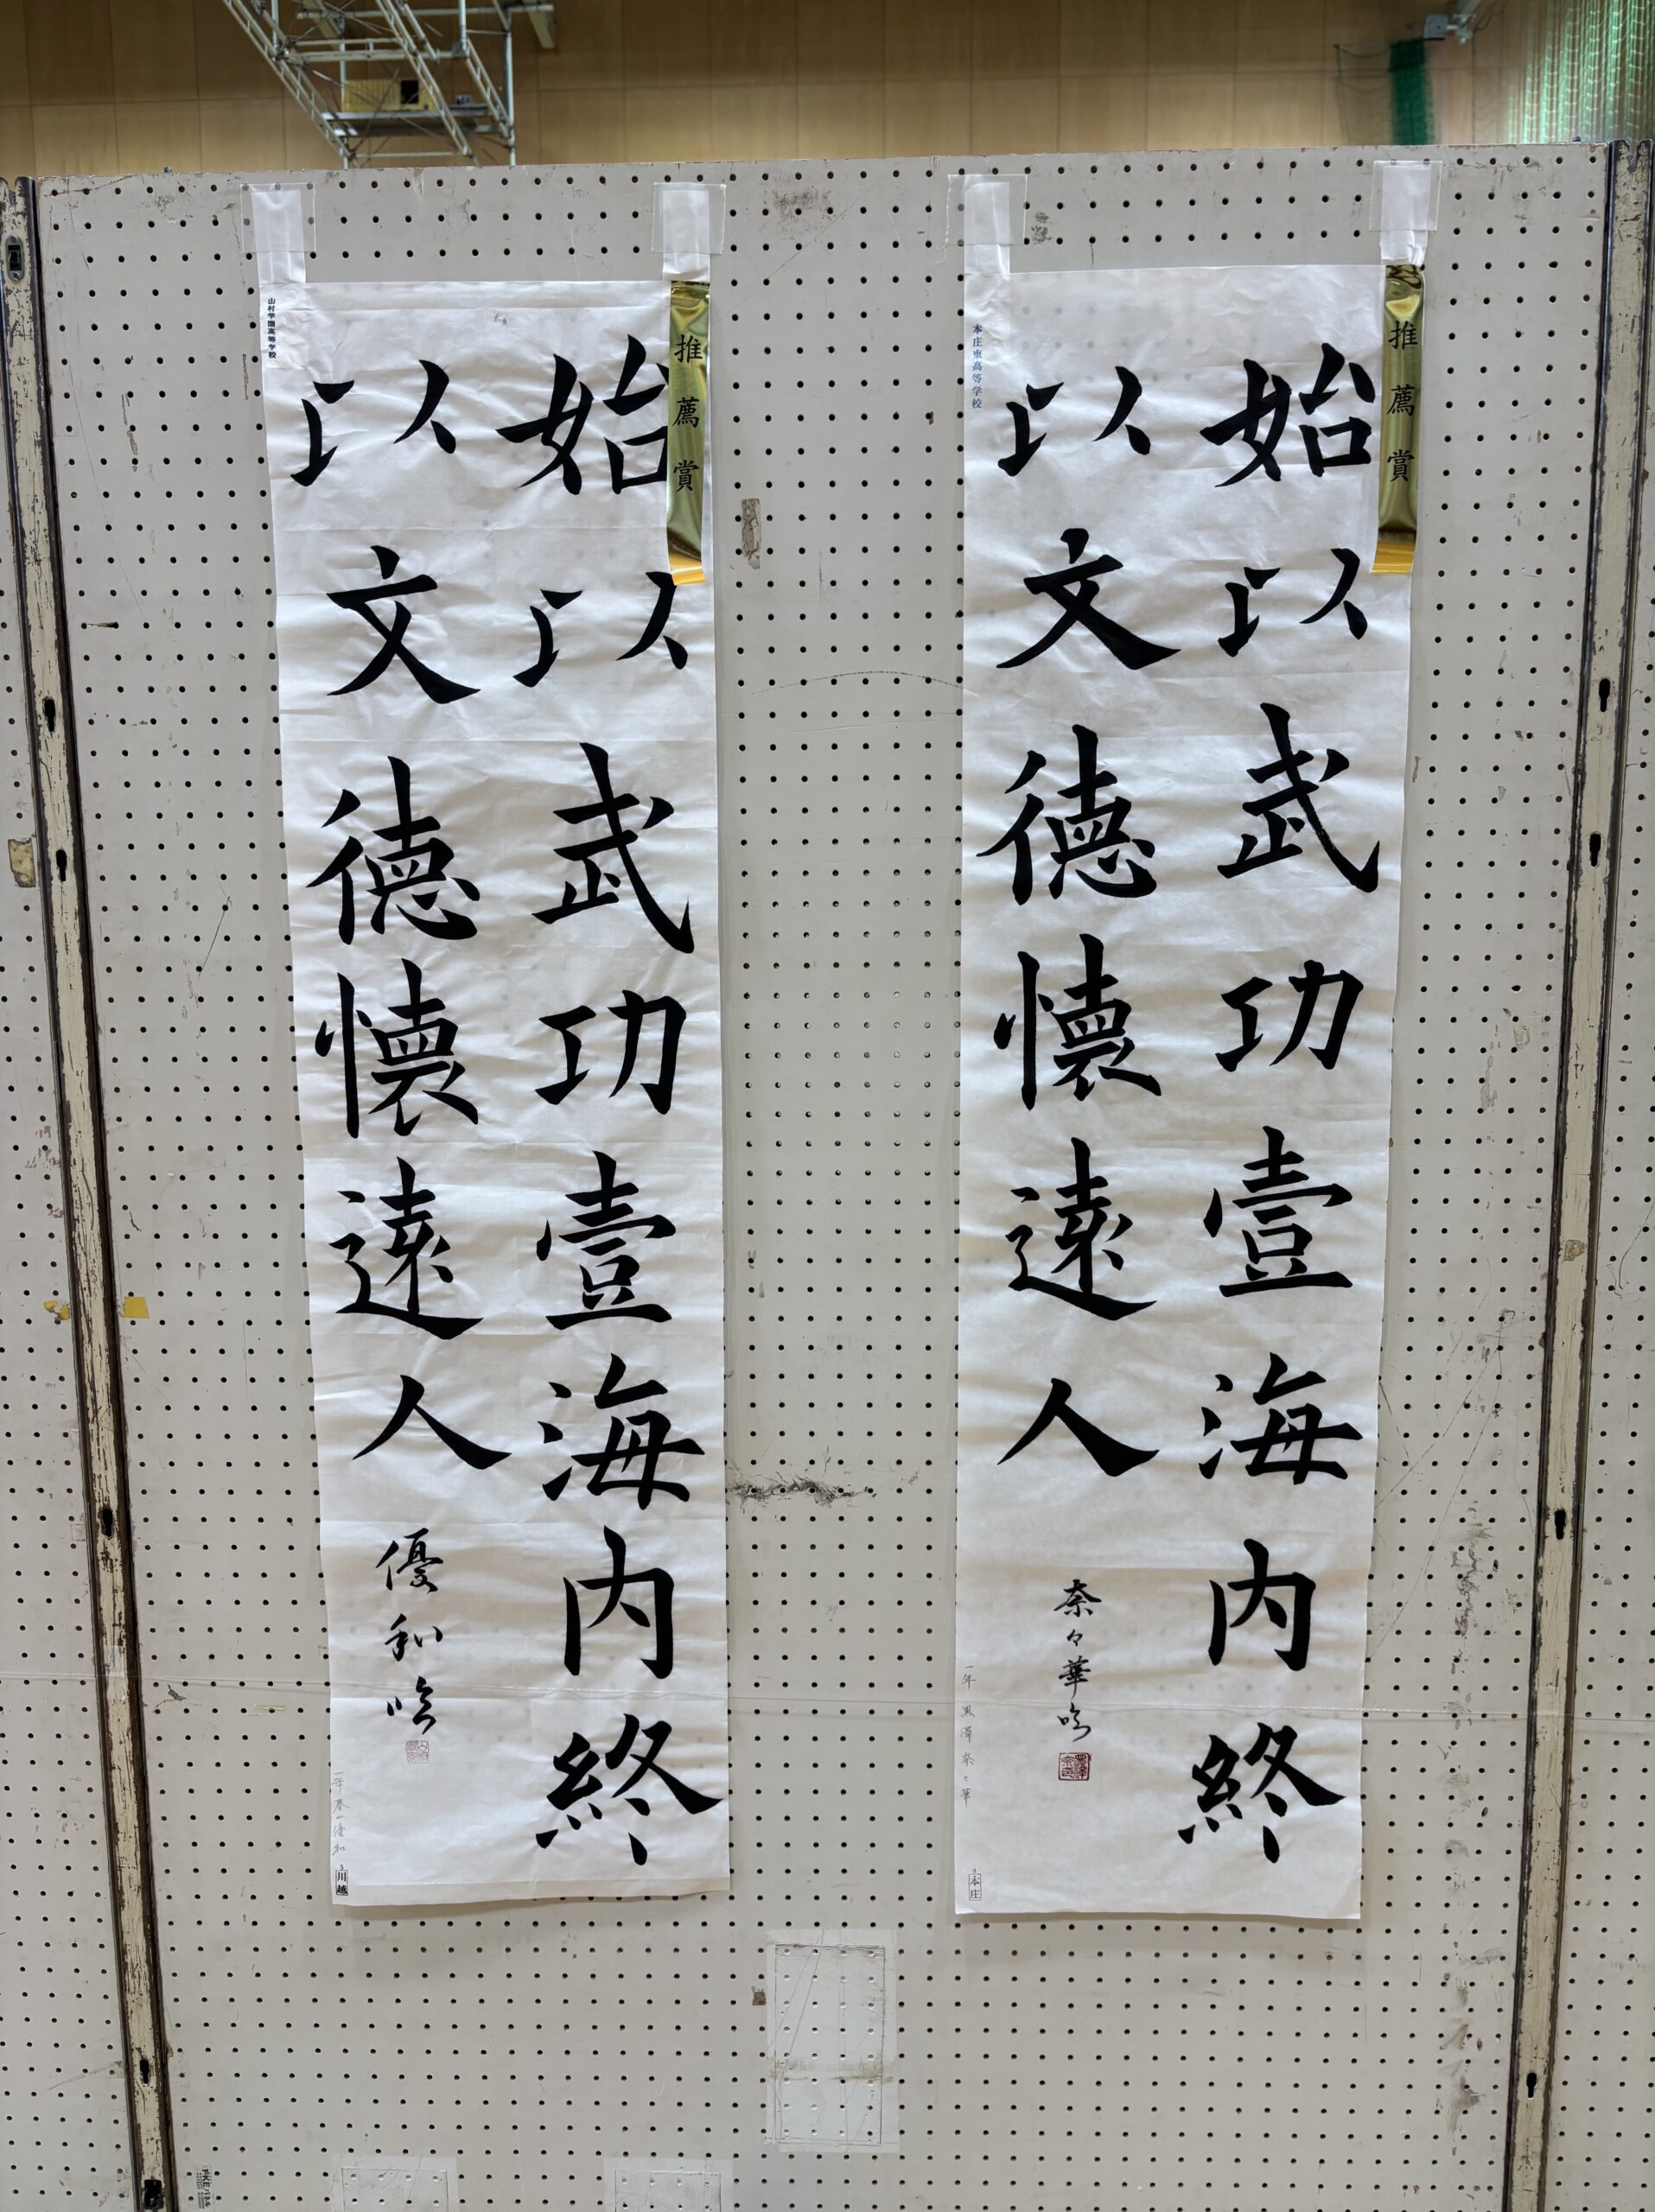 推薦賞
始以武功壹海内終
以文徳懐遠人
奈々華臨
一年 黒澤奈々華
本庄東高等学校
本庄
推薦賞
始以武功壹海内終
以文徳懐遠人
優和臨
山村学園高等学校
川越